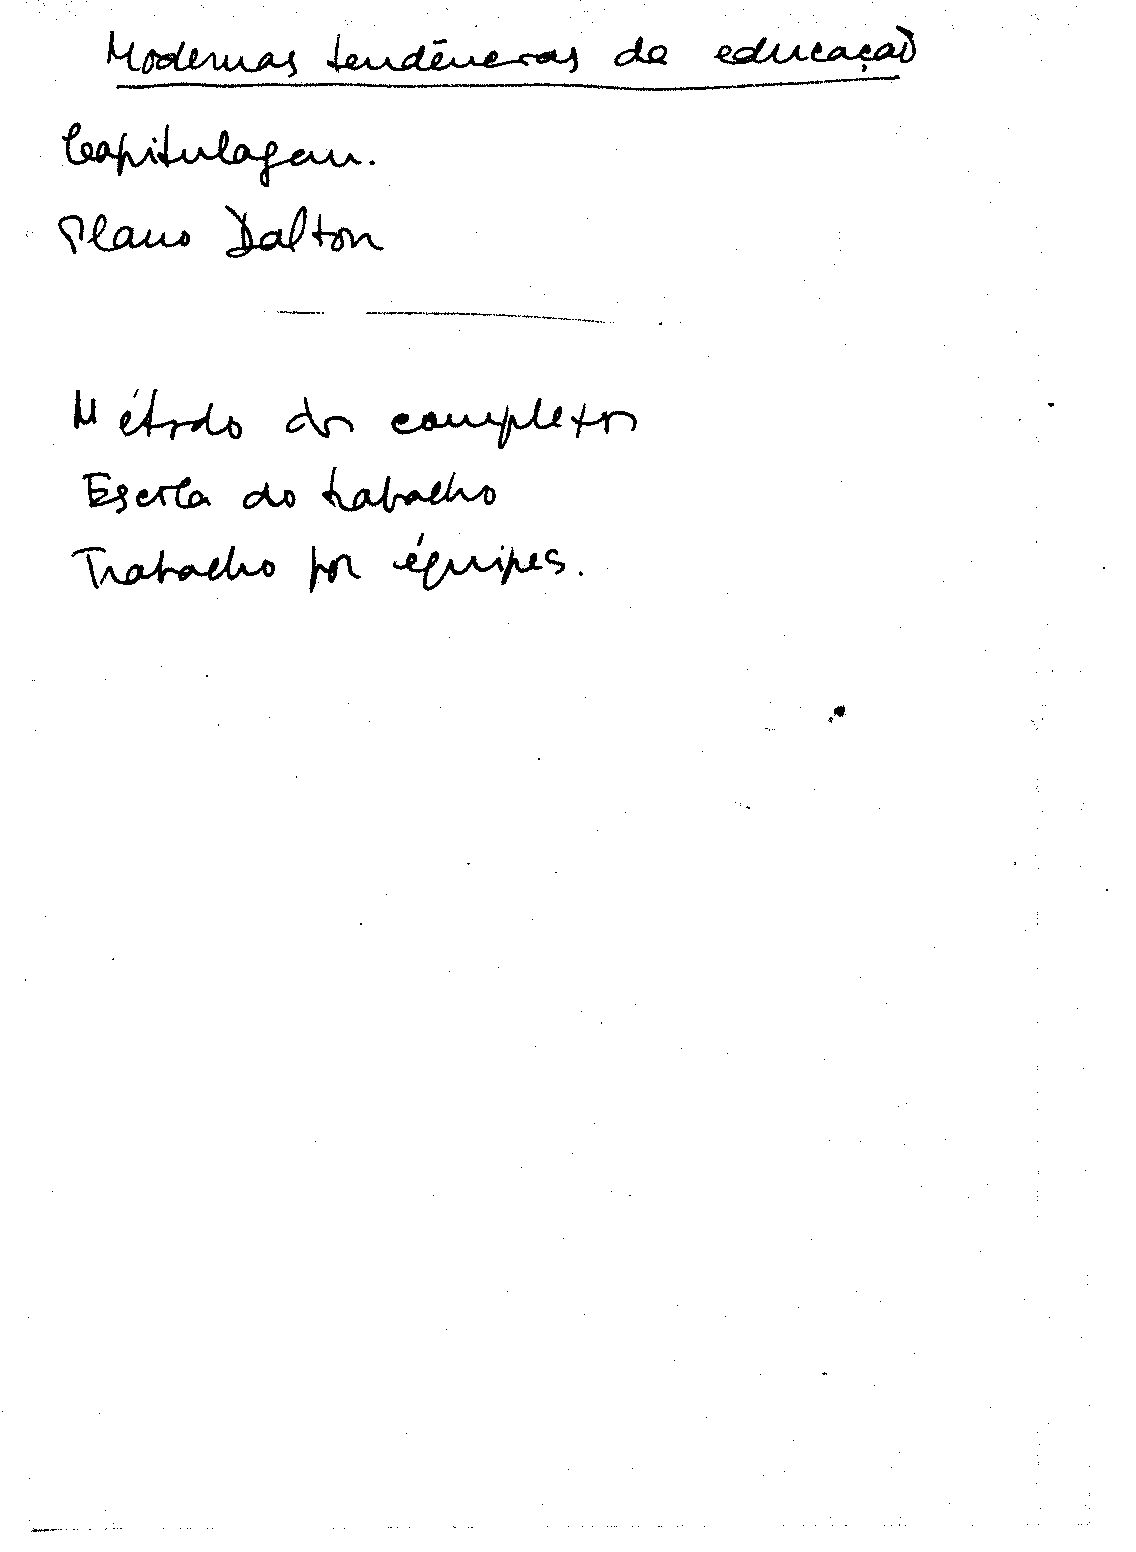 Modernas tendências da educação
Capitulagem.
Plano Dalton
Método dos complexos
Escola do trabalho
Trabalho por équipes.